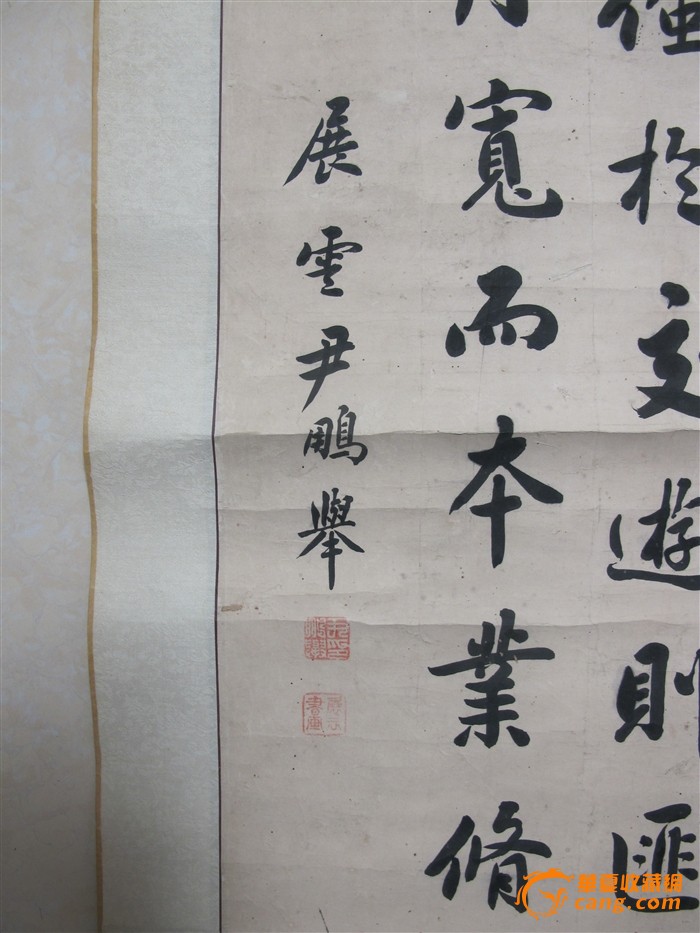 於交遊則匯
寬而本業脩
展雲尹鵬舉
華夏收藏網
cang.com